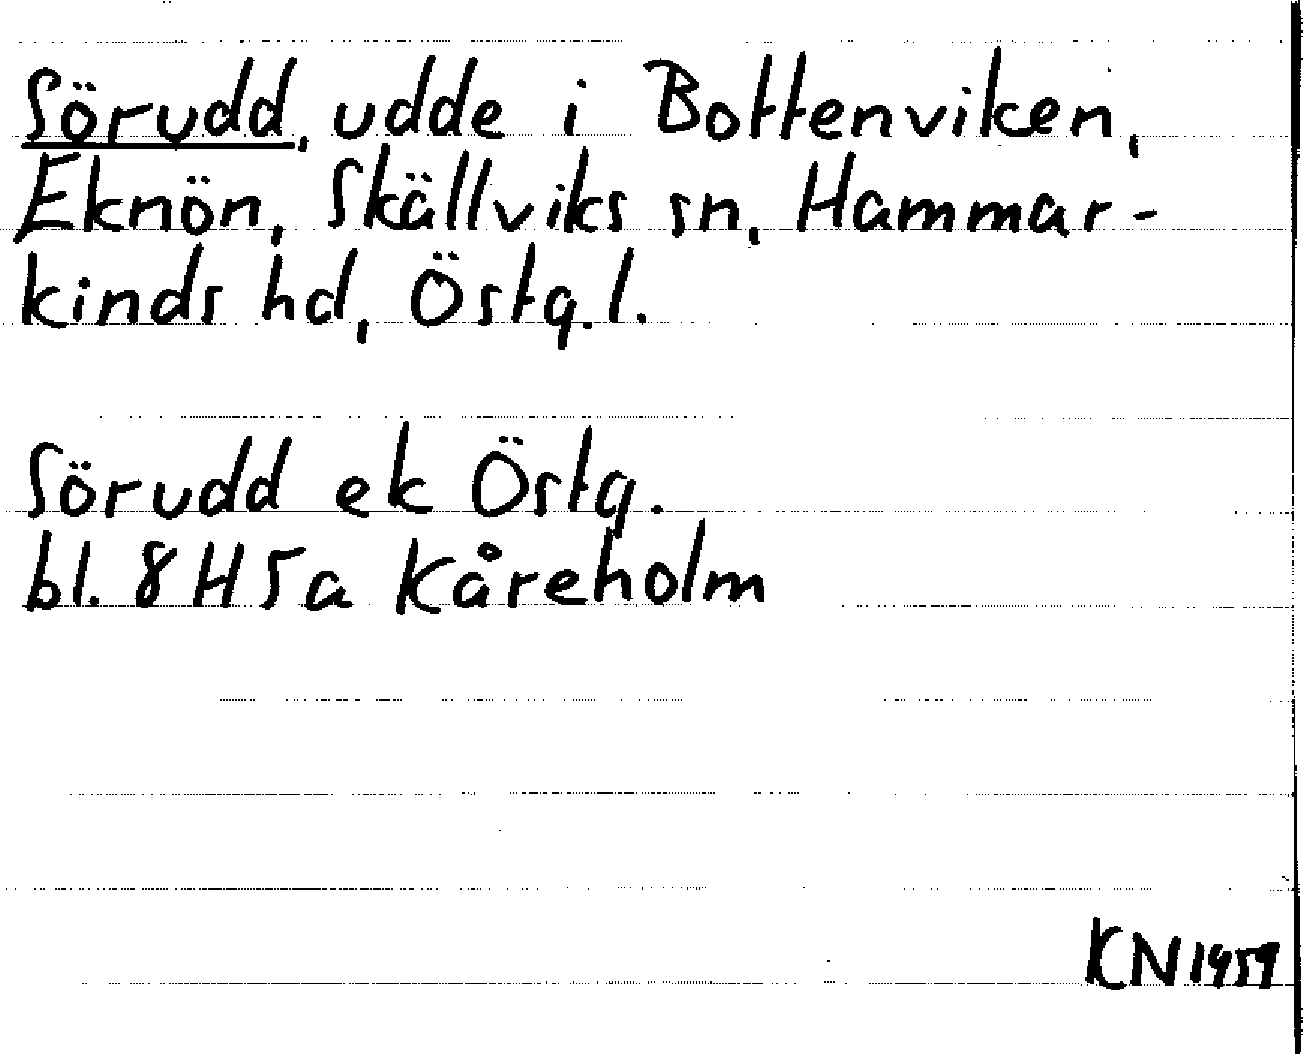 Sörudd, udde i Bottenviken,
Eknön, Skällviks sn, Hammar-
kinds hd, Östg.l.
Sörudd ek Östg.
bl. 8 H 5 a Kåreholm
KN 1959